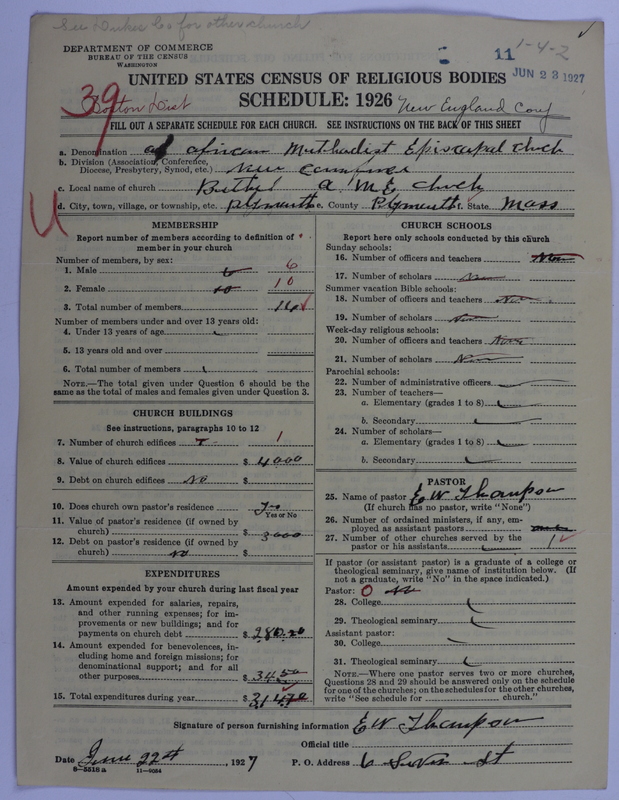 See Dukes Co for other church
DEPARTMENT OF COMMERCE
BUREAU OF THE CENSUS
WASHINGTON
11
1-4-2
JUN 23 1927
UNITED STATES CENSUS OF RELIGIOUS BODIES
SCHEDULE: 1926
39
Boston Dist
New England Conf
FILL OUT A SEPARATE SCHEDULE FOR EACH CHURCH. SEE INSTRUCTIONS ON THE BACK OF THIS SHEET
a. Denomination African Methodist Episcopal
b. Division (Association, Conference,
Diocese, Presbytery, Synod, etc.) New
c. Local name of church Bethel A. M E
d. City, town, village, or township, etc. Plymouth e. County Plymouth f. State Mass
U
MEMBERSHIP
Report number of members according to definition of
member in your church
Number of members, by sex:
1. Male 6 6
2. Female 10 10
3. Total number of members 16
Number of members under and over 13 years old:
4. Under 13 years of age
5. 13 years old and over
6. Total number of members
NOTE.—The total given under Question 6 should be the
same as the total of males and females given under Question 3.
CHURCH BUILDINGS
See instructions, paragraphs 10 to 12
7. Number of church edifices 1
8. Value of church edifices $ 4000
9. Debt on church edifices No $
10. Does church own pastor's residence Yes
Yes or No
11. Value of pastor's residence (if owned by
church) $ 3000
12. Debt on pastor's residence (if owned by
church) No $
EXPENDITURES
Amount expended by your church during last fiscal year
13. Amount expended for salaries, repairs,
and other running expenses; for im-
provements or new buildings; and for
payments on church debt $ 280.20
14. Amount expended for benevolences, in-
cluding home and foreign missions; for
denominational support; and for all
other purposes $ 34.50
15. Total expenditures during year $ 314.70
CHURCH SCHOOLS
Report here only schools conducted by this church
Sunday schools:
16. Number of officers and teachers None
17. Number of scholars None
Summer vacation Bible schools:
18. Number of officers and teachers None
19. Number of scholars None
Week-day religious schools:
20. Number of officers and teachers None
21. Number of scholars None
Parochial schools:
22. Number of administrative officers
23. Number of teachers—
a. Elementary (grades 1 to 8)
b. Secondary
24. Number of scholars—
a. Elementary (grades 1 to 8)
b. Secondary
PASTOR
25. Name of pastor E W Thompson
(If church has no pastor, write "None")
26. Number of ordained ministers, if any, em-
ployed as assistant pastors
27. Number of other churches served by the
pastor or his assistants 1
If pastor (or assistant pastor) is a graduate of a college or
theological seminary, give name of institution below. (If
not a graduate, write "No" in the space indicated.)
Pastor: O No
28. College
29. Theological seminary
Assistant pastor:
30. College
31. Theological seminary
NOTE.—Where one pastor serves two or more churches,
Questions 28 and 29 should be answered only on the schedule
for one of the churches; on the schedules for the other churches,
write "See schedule for church."
Signature of person furnishing information E W Thompson
Official title
Date June 22st, 1927 P. O. Address 6 St
8-5518 a 11-9034